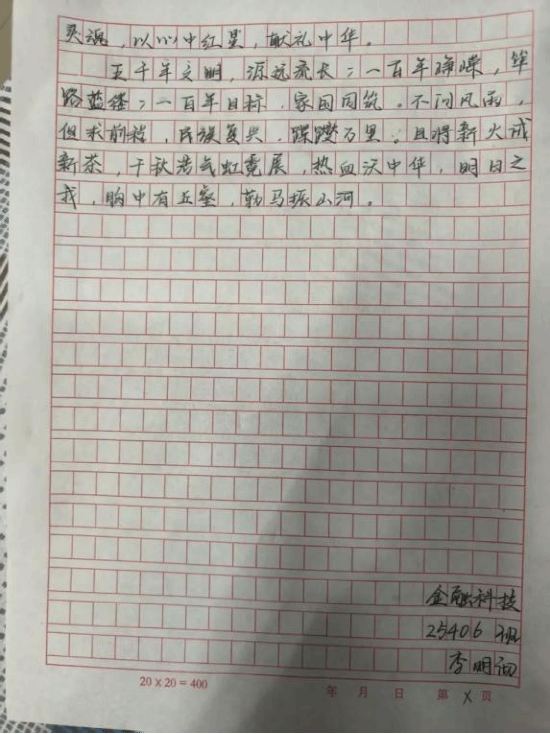 灵魂，以心中红星，献礼中华。
五千年文明，源远流长；一百年峥嵘，筚
路蓝缕；一百年目标，家国同筑。不问风雨，
但求前程，民族复兴，蹀躞万里。且将新火试
新茶，千秋浩气虹霓展，热血沃中华，明日之
我，胸中有丘壑，勒马振山河。
金融科技
25406班
李明
20×20=400
年 月 日 第 页